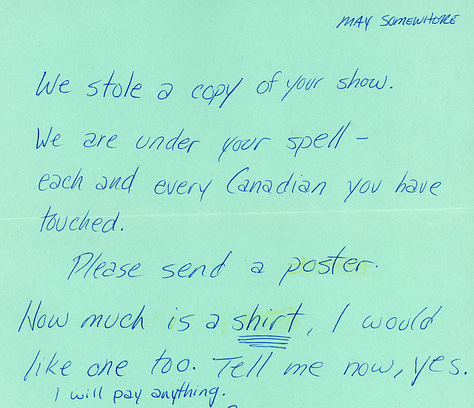 MAY SOMEWHERE
We stole a copy of your show.
We are under your spell -
each and every Canadian you have
touched.
Please send a poster.
How much is a shirt, I would
like one too. Tell me now, yes.
I will pay anything.